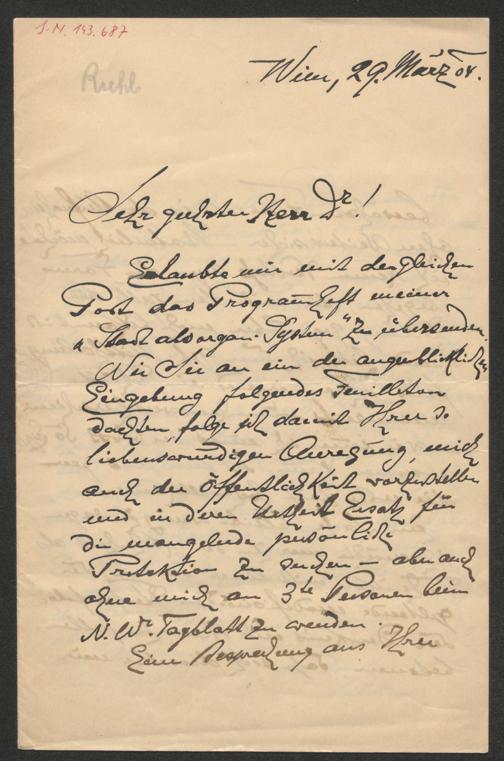 J.N. 143.687
Riehl
Wien, 29. März 04.
Sehr geehrter Herr Dr!
Erlaubte mir mit der gleichen
Post das Programmheft meiner
„Stadt als organ. System“ zu übersenden.
Wie Sie an ein der augenblicklichen
Eingebung folgendes Feuilleton
dachten, folge ich damit Ihrer so
liebenswürdigen Anregung, mich
auch der Öffentlichkeit vorzustellen
und in deren Urteil Ersatz für
die mangelnde persönliche
Protektion zu suchen – aber auch
ohne mich an 3te Personen beim
N. Wr. Tagblatt zu wenden.
Eine Besprechung aus Ihrer